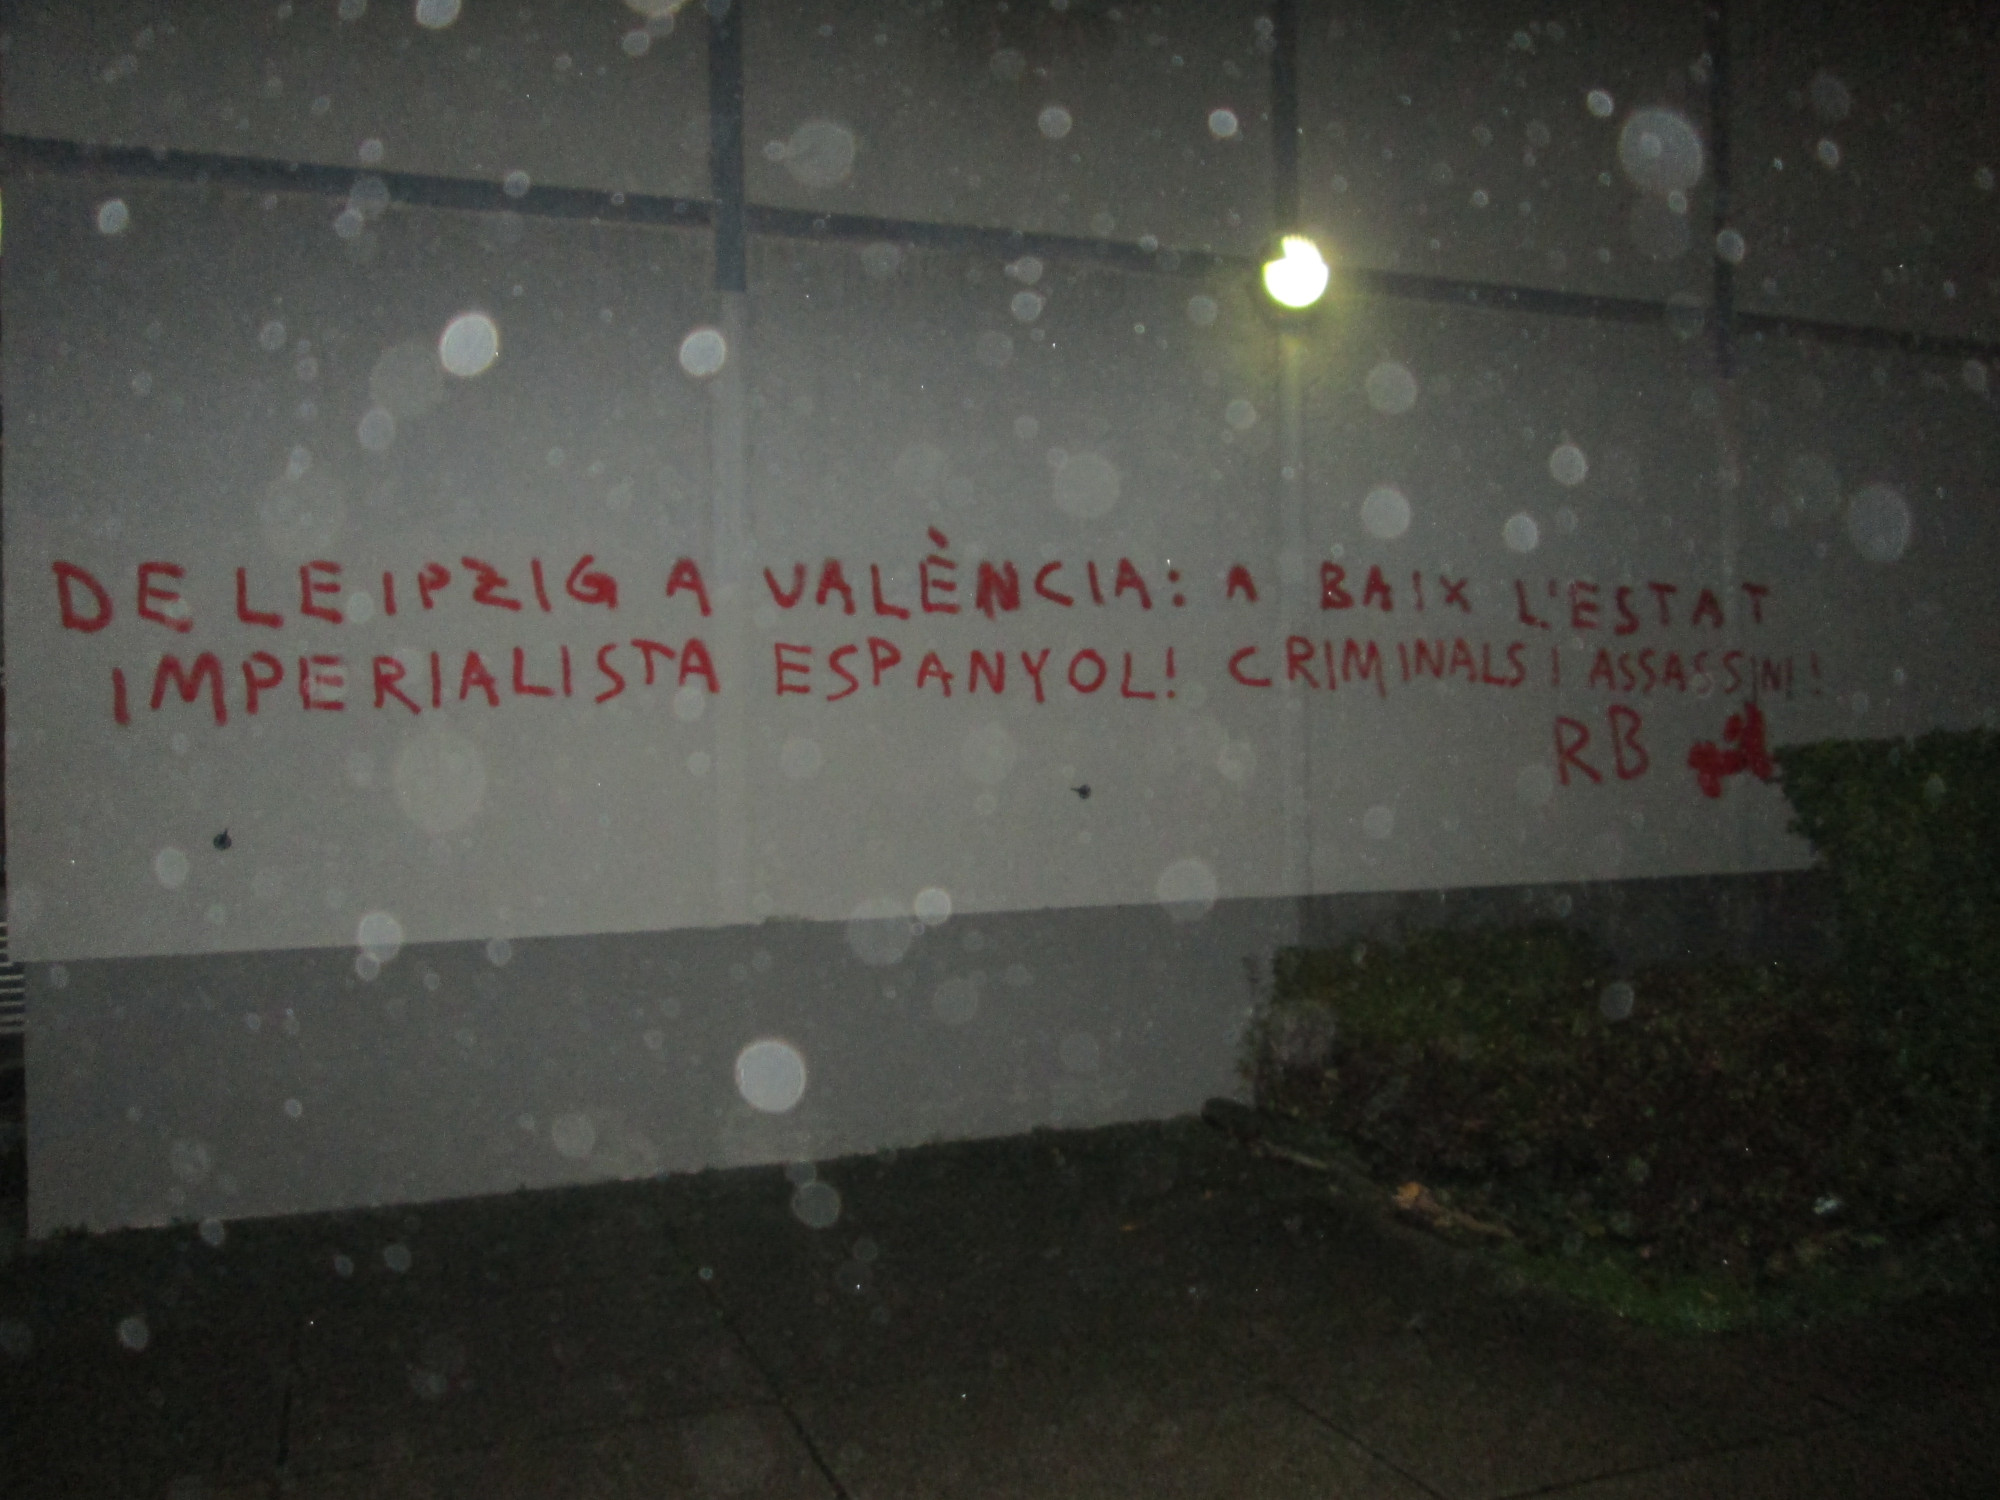 DE LEIPZIG A VALÈNCIA: A BAIX L'ESTAT
IMPERIALISTA ESPANYOL! CRIMINALS I ASSASSINS!
RB